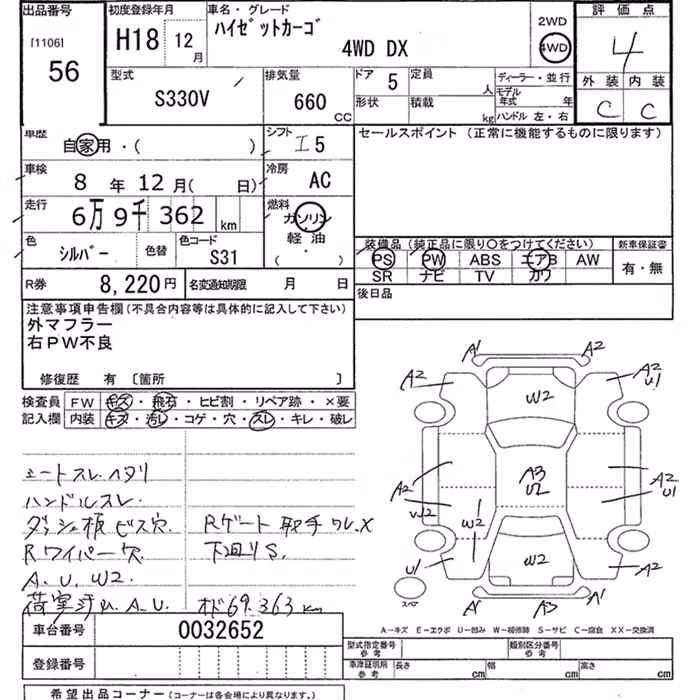 出品番号 初度登録年月 車名・グレード 評価点
[1106] H18 12月 ハイゼットカーゴ 2WD
56 4WD DX 4WD 4
型式 排気量 ドア 5 定員 人 ディーラー・並行 外装 内装
S330V 660 CC 形状 積載 kg モデル年式 年 C C
ハンドル 左・右
車歴 自家用・( ) シフト I5 セールスポイント (正常に機能するものに限ります)
車検 8年12月( 日) 冷房 AC
走行 6万9千362 km 燃料 ガソリン
軽油
( ・ )
色 シルバー 色替 色コード S31 装備品 (純正品に限り○をつけてください) 新車保証書
PS PW ABS エアB AW 有・無
R券 8,220円 名変通知期限 月 日 SR ナビ TV カワ
注意事項申告欄(不具合内容等は具体的に記入して下さい) 後日品
外マフラー
右PW不良
修復歴 有 〔箇所 〕
検査員 FW キズ・飛石・ヒビ割・リペア跡・×要
記入欄 内装 キズ・汚レ・コゲ・穴・スレ・キレ・破レ
シートスレ.ヘタリ
ハンドルスレ.
ダッシュ板ビス穴. Rゲート取手ワレ.X
Rワイパー欠 下廻りS.
A.U.W2.
荷室汚レA.U. オド69.363km
A1 A2
A2 W2 A2
U1
A3
U2
A2 A2
U1
W2 W2
U1 W2 A2
スペア A1 A3 A1
A−キズ E−エクボ U−凹み W−補修跡 S−サビ C−腐食 XX−交換済
車台番号 0032652
型式指定番号 参考 類別区分番号 参考
登録番号 車庫証明用 参考 長さ cm 幅 cm 高さ cm
希望出品コーナー (コーナーは各会場により異なります。)